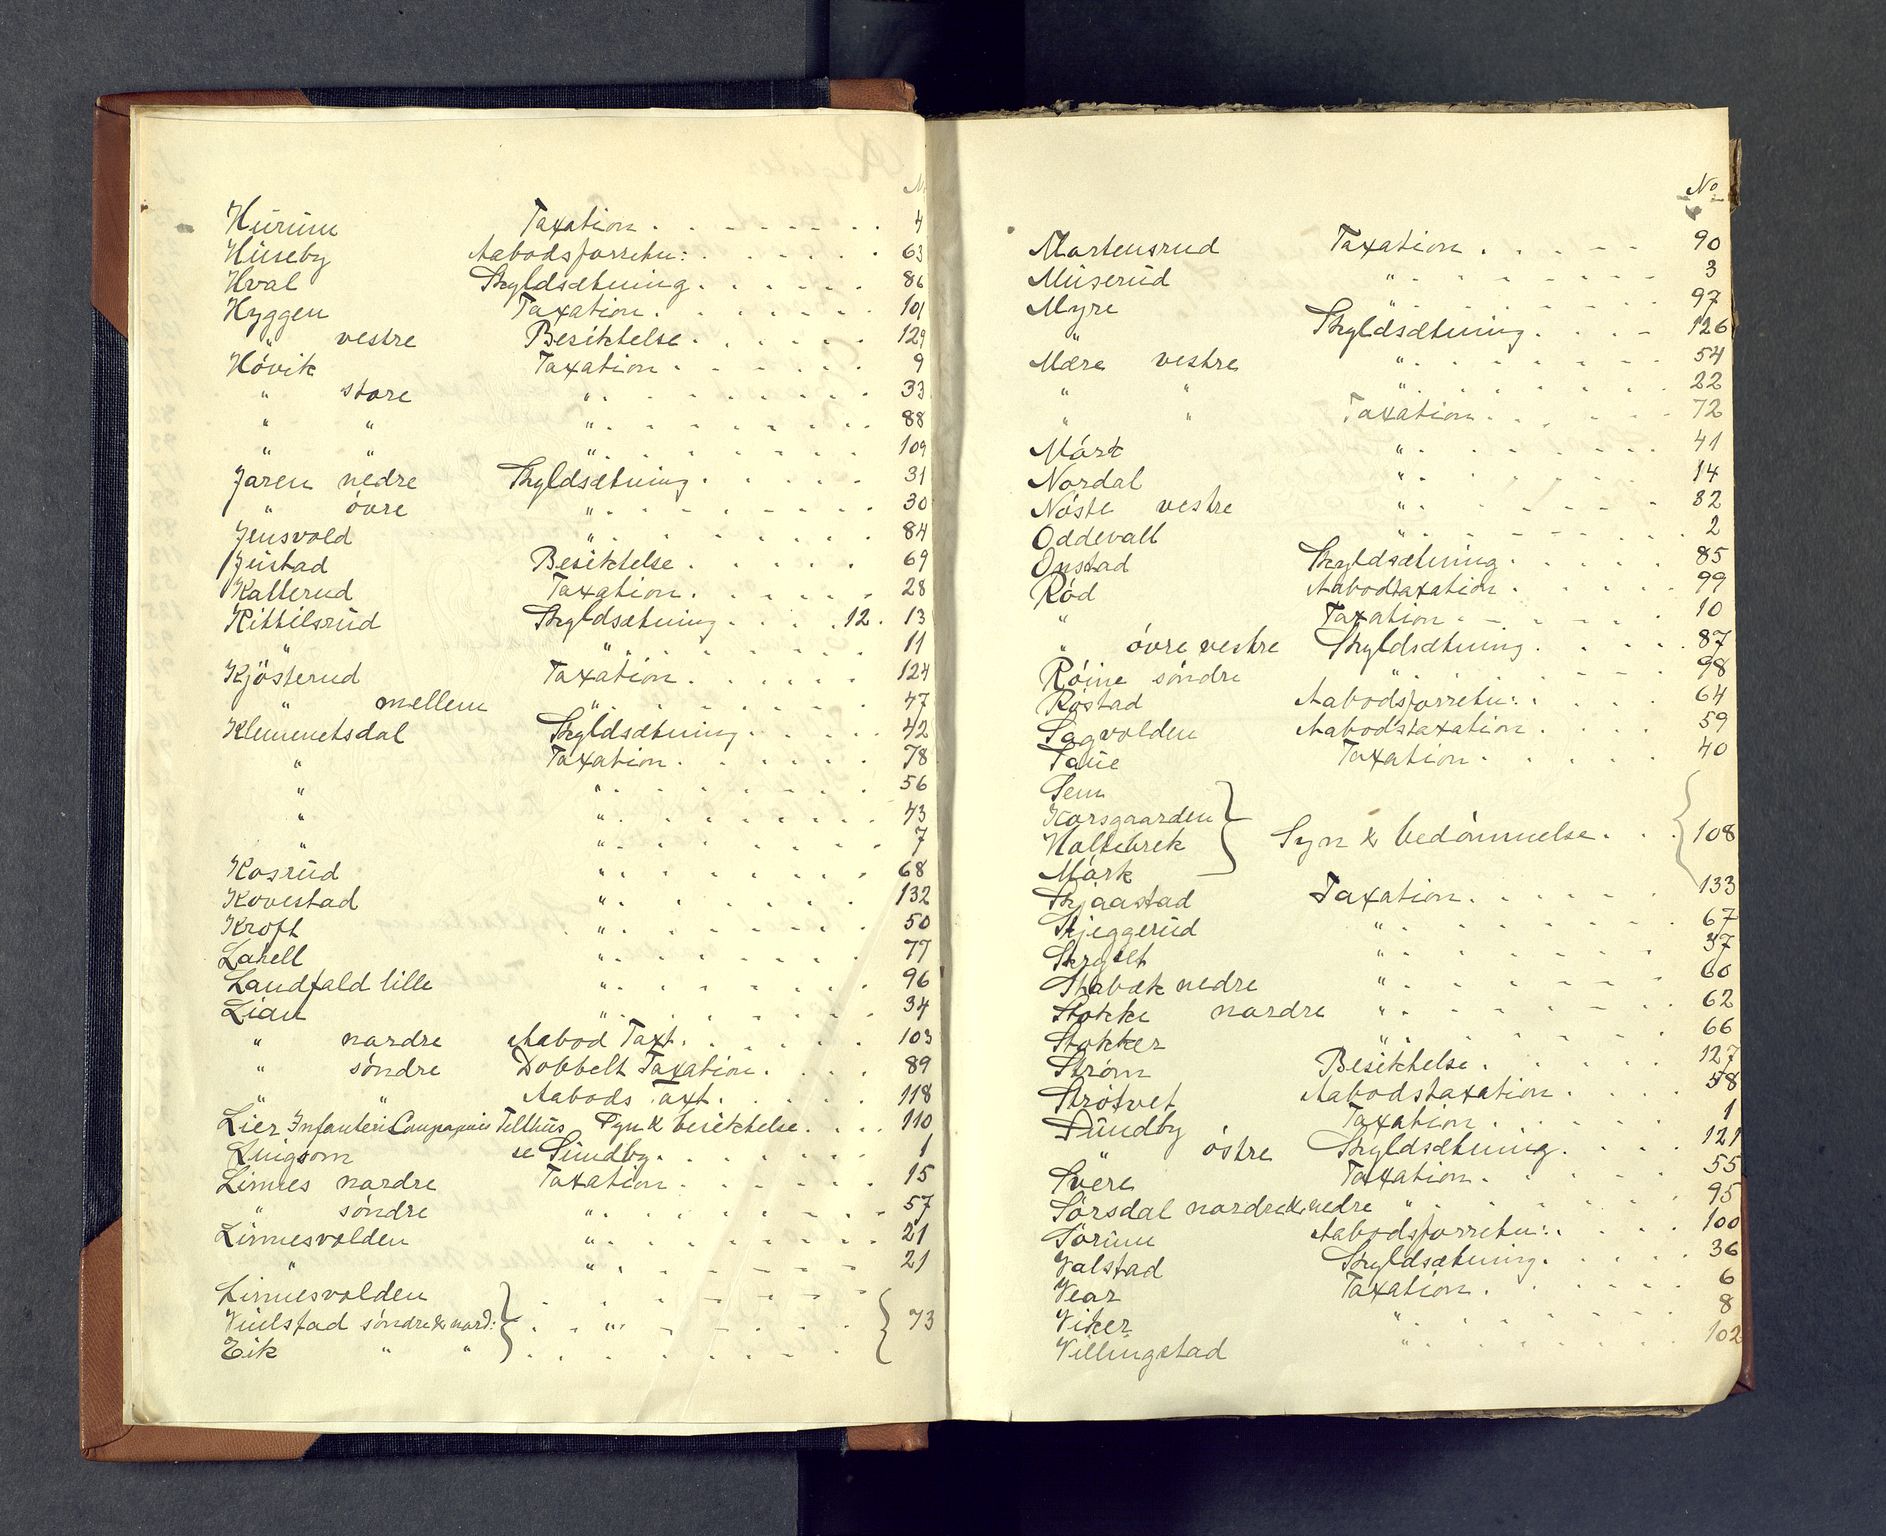 No
Hurum Taxation . . . . . . . . 4
Huseby Aabodsforretn: . . . . . . 63
Hval Skyldsætning . . . . . . 86
Hyggen Taxation . . . . . . . 101
" vestre Besiktelse . . . . . . 129
Hövik Taxation . . . . . . . 9
" store " . . . . . . . . . 33
" " " . . . . . . . . . 88
" " " . . . . . . . . . 109
Jaren nedre Skyldsætning . . . . . . 31
" övre " . . . . . . . . . 30
Jensvold " . . . . . . . . . 84
Justad Besiktelse . . . . . . 69
Kallerud Taxation . . . . . . . 28
Kittilsrud Skyldsætning . . . . 12 . 13
" " . . . . . . . . . 11
Kjösterud Taxation . . . . . . 124
" mellem " . . . . . . . . . 47
Klemmetsdal Skyldsætning . . . . . 42
" Taxation . . . . . . . 78
" " . . . . . . . . . 56
" " . . . . . . . . . 43
" " . . . . . . . . . 7
Kosrud " . . . . . . . . . 68
Kovestad " . . . . . . . . . 132
Kroft " . . . . . . . . . 50
Lahell " . . . . . . . . . 77
Landfald lille " . . . . . . . . . 96
Lian " . . . . . . . . . 34
" nordre Aabod Taxt . . . . . . . 103
" søndre Dobbelt Taxation . . . . 89
" " Aabods Taxt . . . . . . 118
Lier Infanteri Compagnies Telthus Syn & besiktelse . . . . 110
Lingsom se Sundby . . . . . . . 1
Linnes nordre Taxation . . . . . . . 15
" søndre " . . . . . . . . . 57
Linnesvolden " . . . . . . . . . 21
" " . . . . . . . . . 21
Linnesvolden
Vuilstad søndre & nord: " 73
Eik " "
No
Martensrud Taxation . . . . . . 90
Muserud " . . . . . . . . . 3
Myre " . . . . . . . . . 97
" Skyldsætning . . . . 126
Mære vestre " . . . . . . . . . 54
" " " . . . . . . . . . 22
" " Taxation . . . . . . . 72
Mörk " . . . . . . . . . 41
Nordal " . . . . . . . . . 14
Nöste vestre " . . . . . . . . . 82
Oddevall " . . . . . . . . . 2
Onstad Skyldsætning . . . . . . 85
Röd Aabodtaxation . . . . . . 99
" Taxation . . . . . . . 10
" övre vestre Skyldsætning . . . . . . 87
Röine söndre " . . . . . . . . . 98
Röstad Aabodsforretn: . . . . . 64
Sagvolden Aabodstaxation . . . . . 59
Saue Taxation . . . . . . 40
Sem
Korsgaarden
Holtebrek Syn & bedömmelse . . . 108
Mörk
Skjaastad Taxation . . . . . . 133
Skjeggerud " . . . . . . . . . 67
Skryset " . . . . . . . . . 37
Stabæk nedre " . . . . . . . . . 60
Stokke nordre " . . . . . . . . . 62
Stokker " . . . . . . . . . 66
Strøm Besiktelse . . . . . . 127
Strötvet Aabodstaxation . . . . 58
Sundby Taxation . . . . . . 1
östre Skyldsætning . . . . . 121
Svere Taxation . . . . . . 55
Sörsdal nordre & nedre " . . . . . . . . . 95
Sörum Aabodsforretn: . . . . . 100
Valstad Skyldsætning . . . . . . 36
Vear Taxation . . . . . . 6
Viker " . . . . . . . . . 8
Villingstad " . . . . . . . . . 102